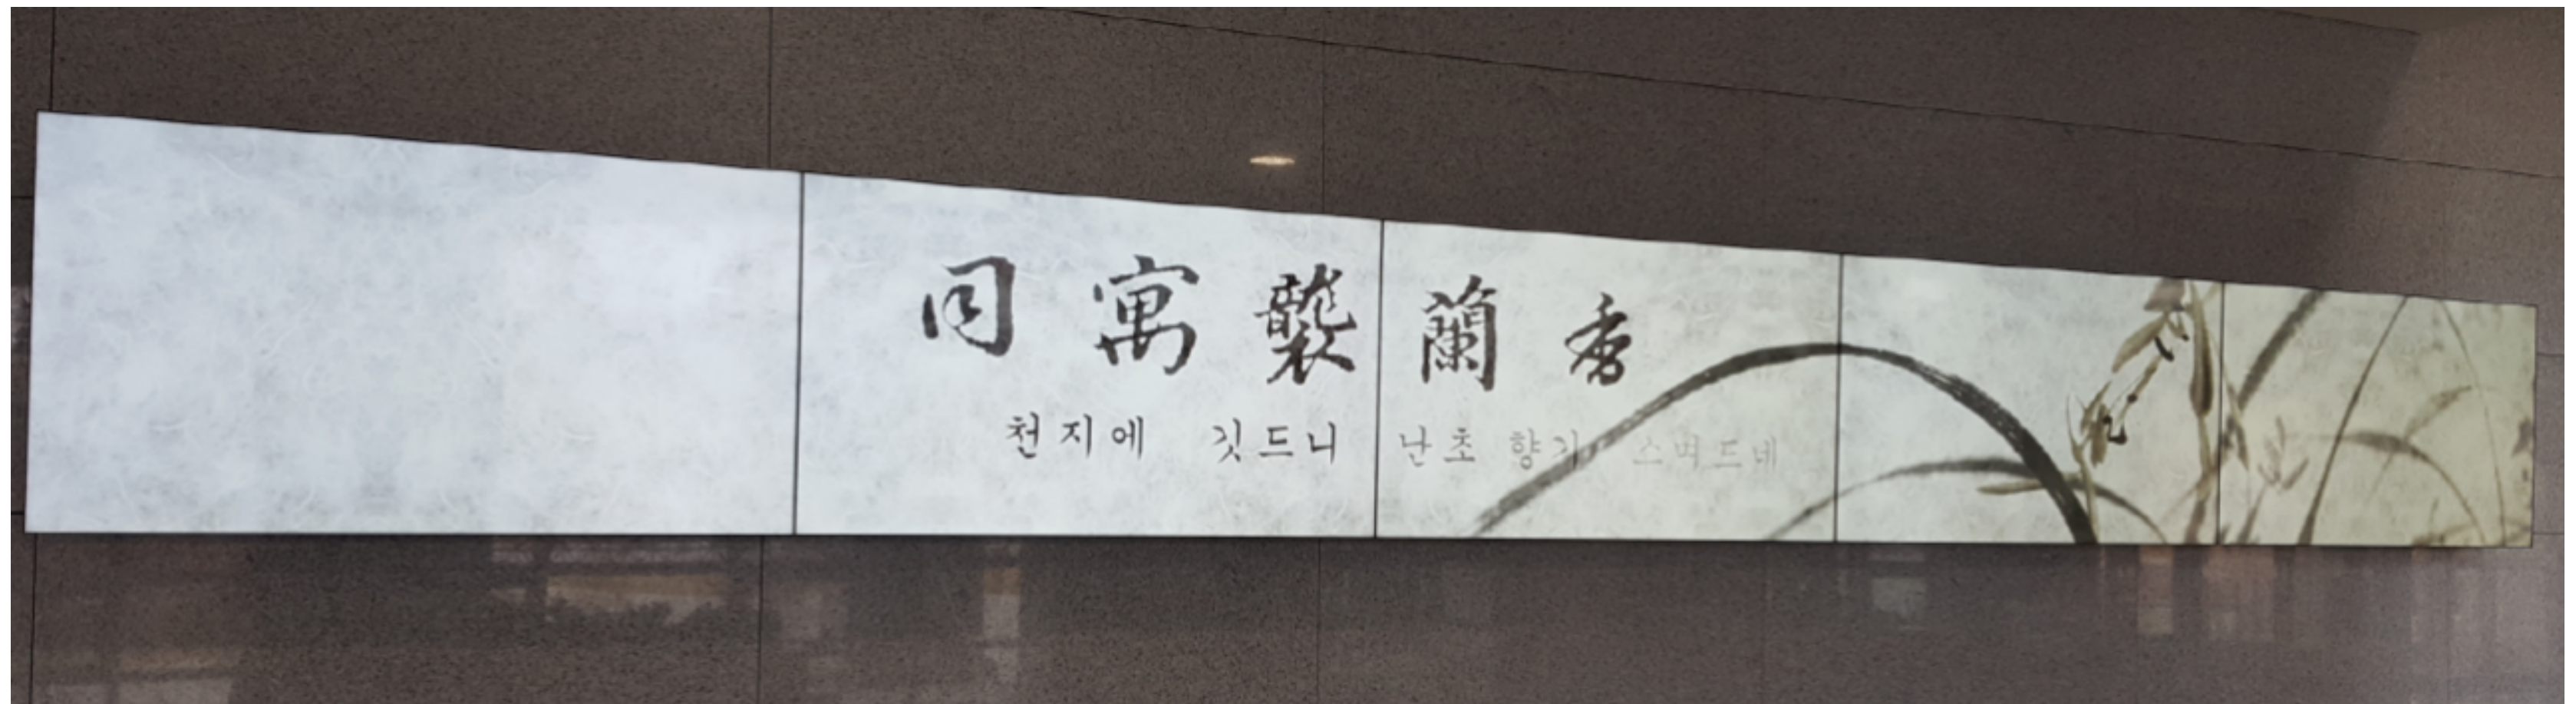 同寓襲蘭香
천지에 깃드니 난초 향기 스며드네